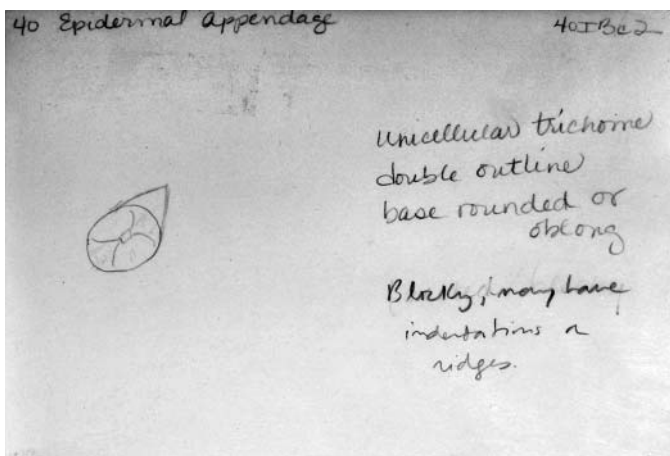 40 Epidermal Appendage
40IBc2
Unicellular trichome
double outline
base rounded or
oblong
Blocky, may have
indentations or
ridges.